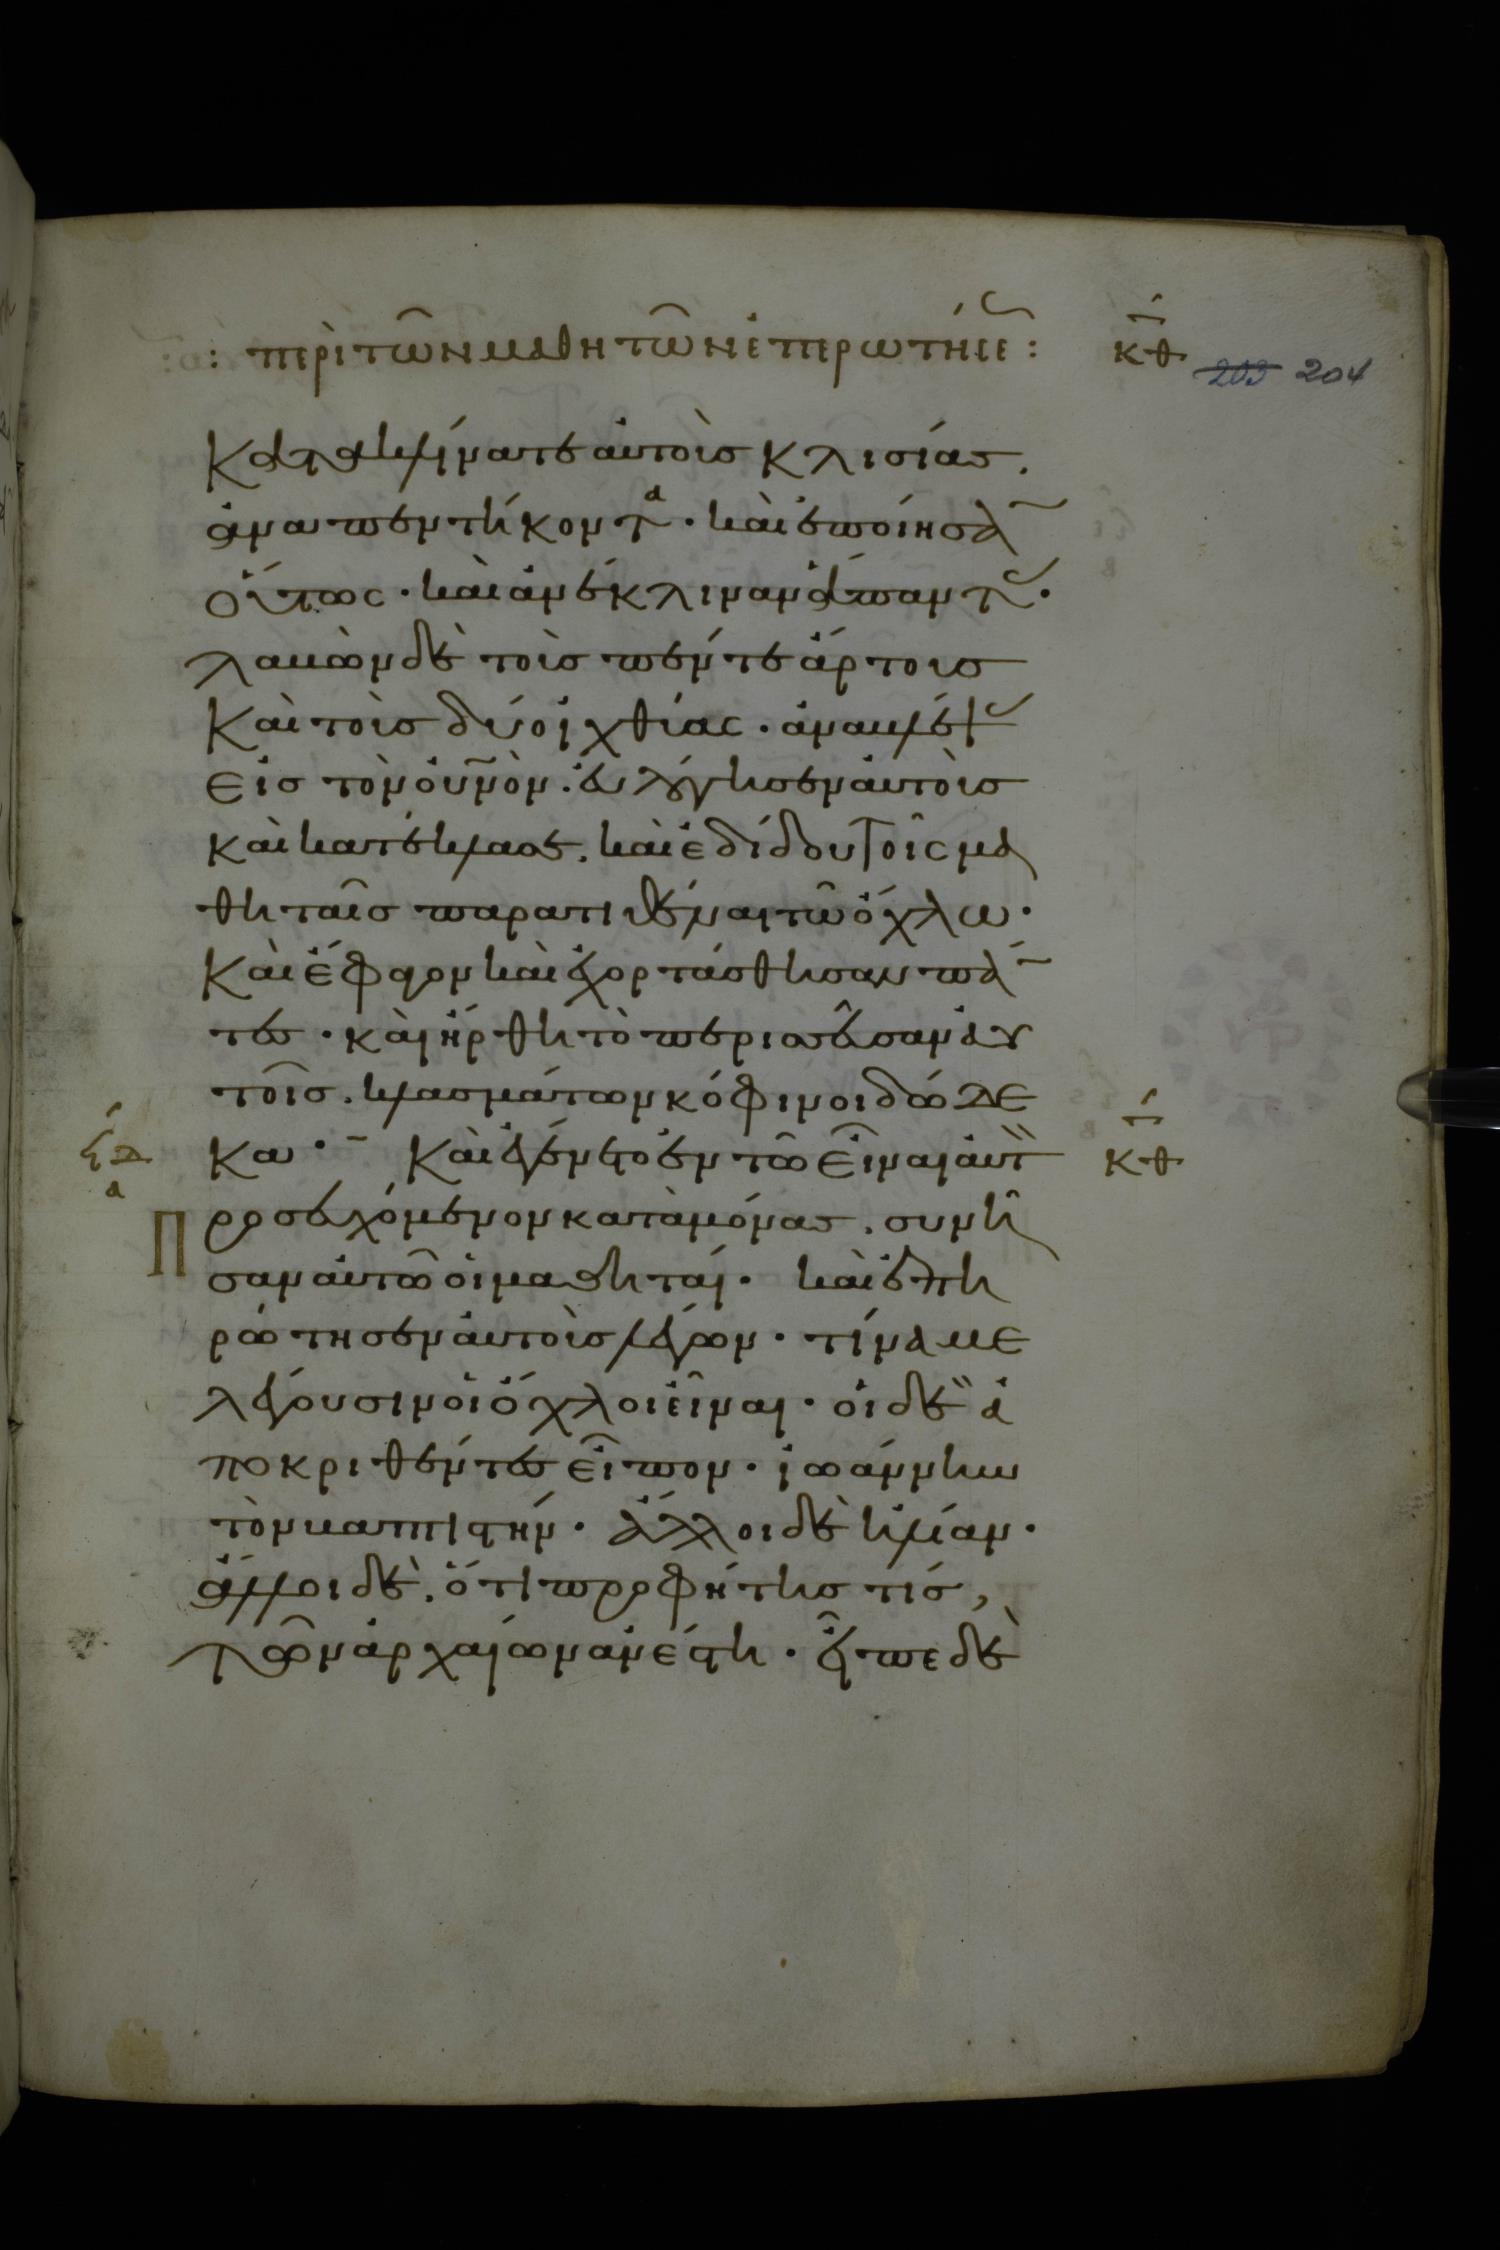 : περὶ τῶν μαθητῶν ἐπερωτήσε : κθ
203 204
Κατακλίνατε αὐτοὺσ κλισίας.
ἀνα πεντήκοντα · καὶ ἐποίησαν
οὕτως · καὶ ἀνέκλιναν ἅπαντας ·
λαβὼν δὲ τοὺσ πέντε ἄρτουσ
Καὶ τοὺσ δύο ἰχθύας · ἀναβλέψας
Εἰσ τὸν οὐνὸν · εὐλόγησεν αὐτοὺσ
καὶ κατέκλασε. καὶ ἐδίδου τοῖς μα
θηταῖσ παρατιθέναι τῶ ὄχλω ·
Καὶ ἔφαγον καὶ ἐχορτάσθησαν πάν
τες · καὶ ἤρθη τὸ περισσεῦσαν αὐ
τοῖσ. κλασμάτων κόφινοι δώδε
κα · Καὶ ἐγένετο ἐν τῶ εἶναι αὐτ κθ
Προσευχόμενον καταμόνας. συνῆ
σαν αὐτῶ οἱ μαθηταί · καὶ ἐπη
ρώτησεν αὐτοὺσ λέγων · τίνα με
λέγουσιν οἱ ὄχλοι εἶναι · οἱ δὲ ἀ
ποκριθέντες εἶπον · ἰωάννην
τὸν βαπτιστήν · ἄλλοι δὲ ἠλίαν ·
ἄλλοι δὲ. ὅτι προφήτησ τίσ,
τῶν ἀρχαίων ἀνέστη · εἶπε δὲ